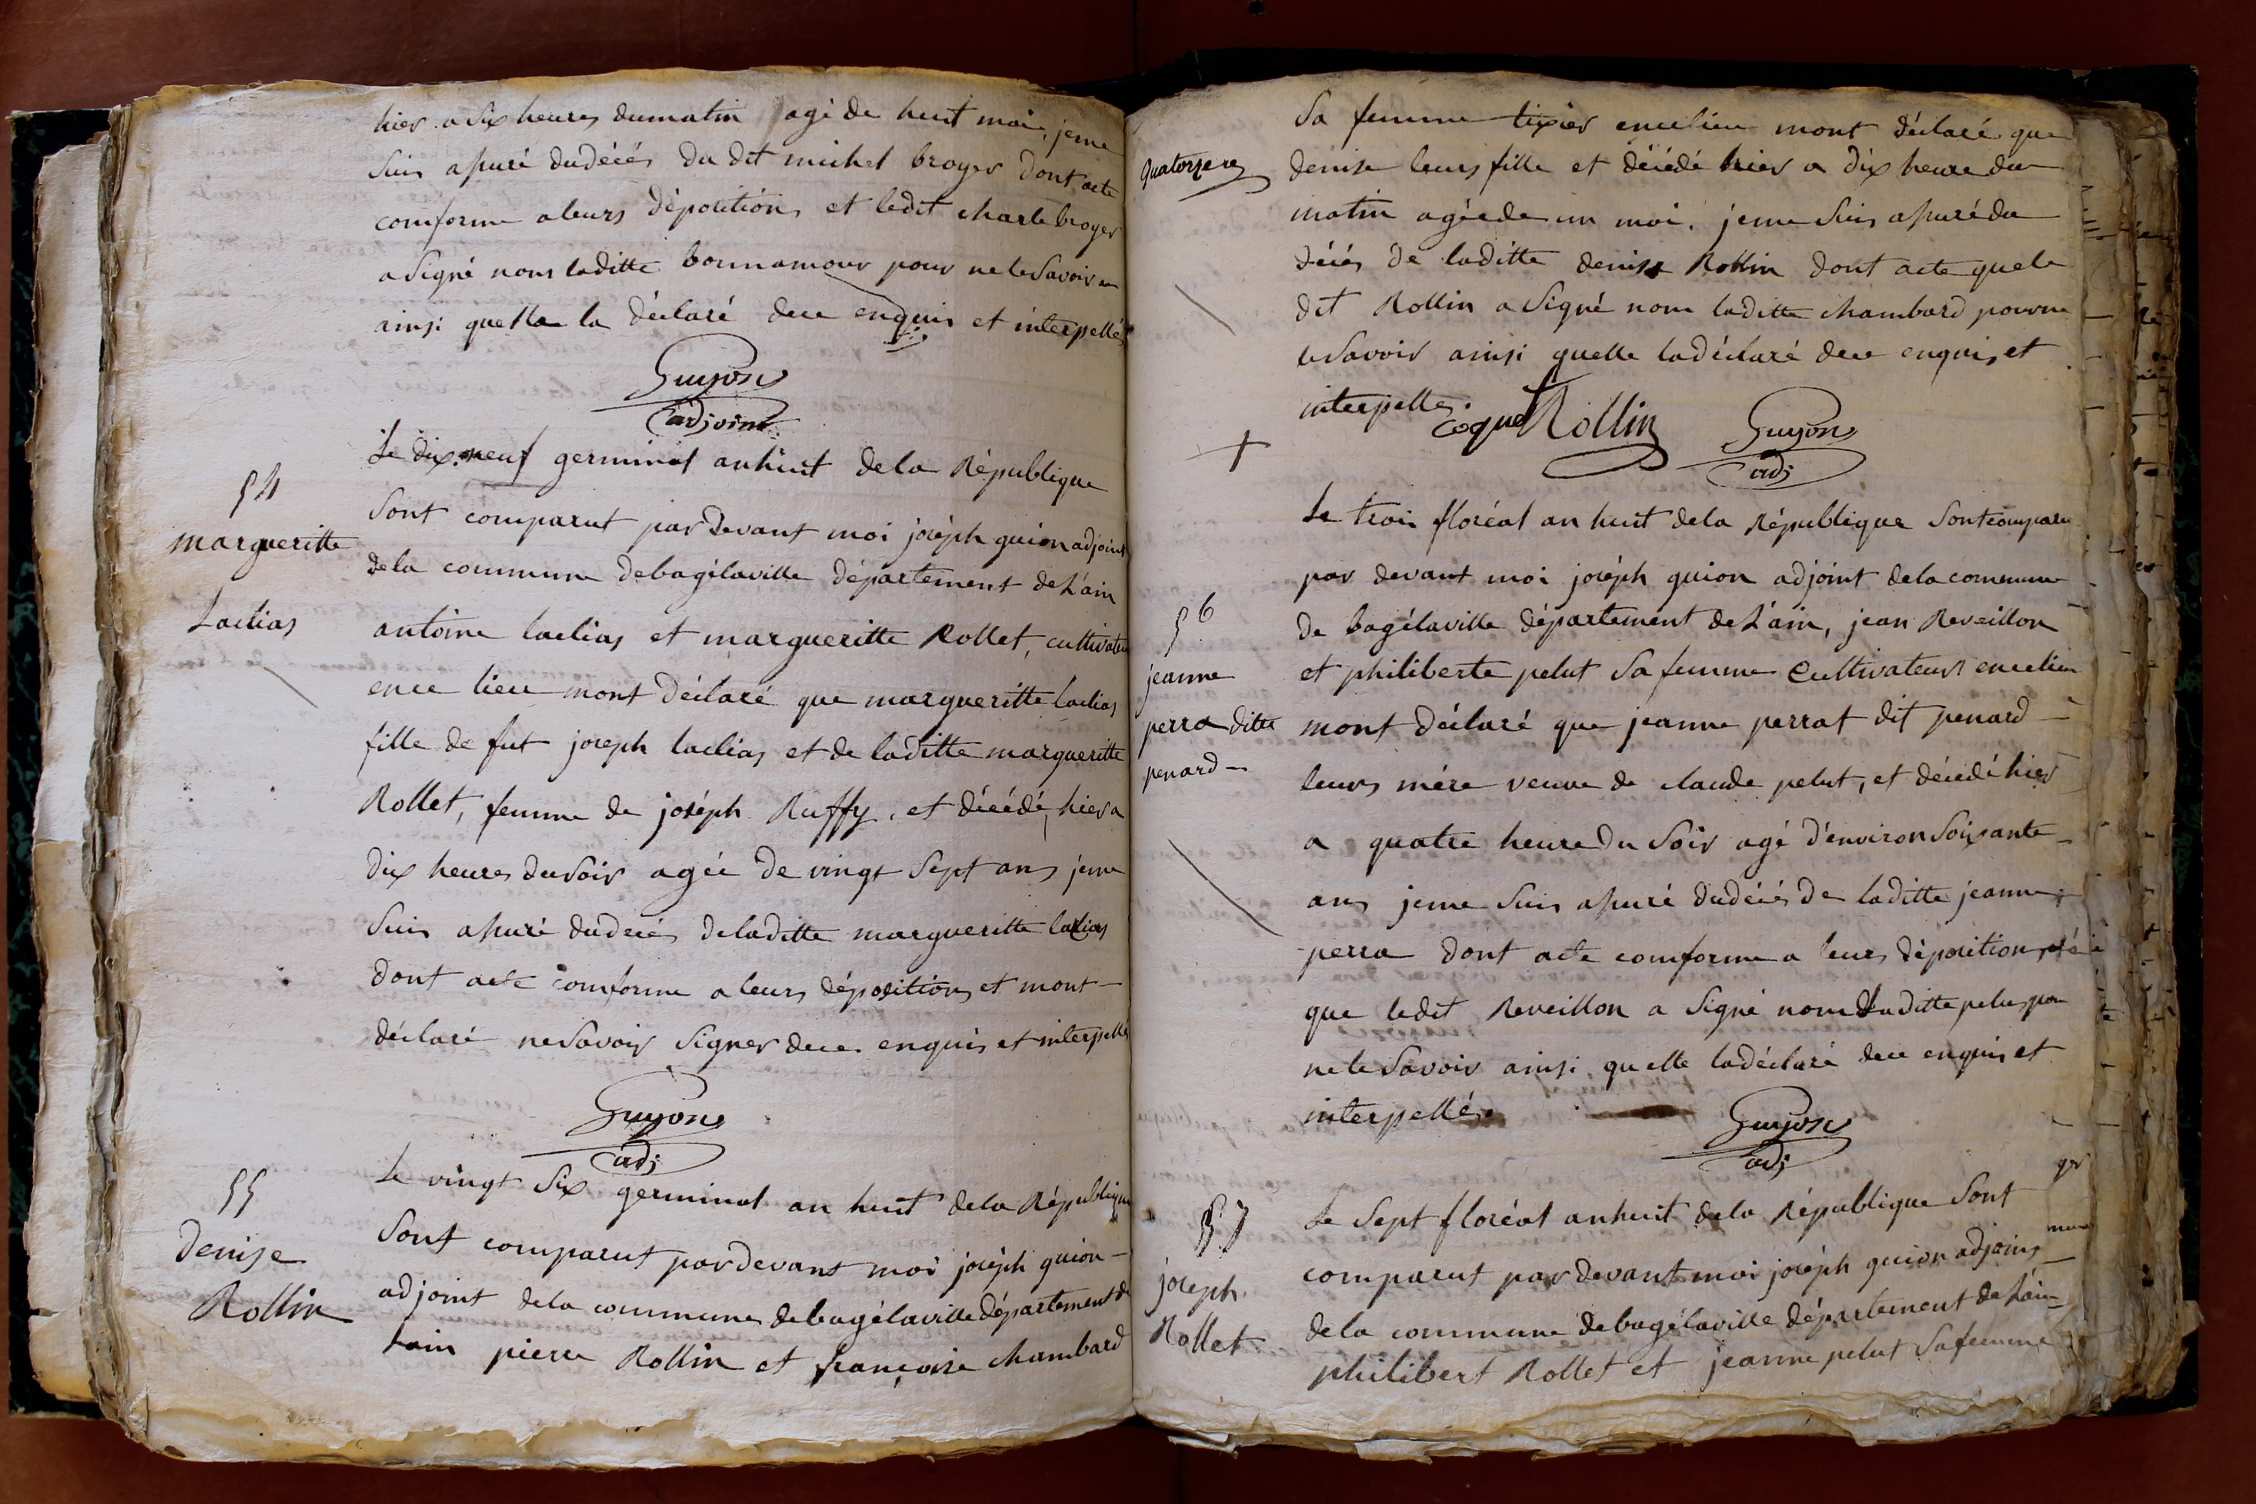 hier a six heures dumatin agé de huit moi, jeme
suis assuré dudécés du dit michel broyer dont acte
comforme aleurs déposition, et ledit charle broyer
a signé nom laditte bonnamour pour ne le savoir
ainsi quella la déclaré dece enquis et interpellé
Guyon
adjoint
54
margueritte
Laclias
Le dix neuf germinal an huit dela République
sont comparut pardevant moi joséph guion adjoint
dela commune debagélaville département deLain
antoine laclias et margueritte Rollet, cultivateur
ence lieu mont déclaré que margueritte laclias
fille de fut joseph laclias et de laditte margueritte
Rollet, femme de joséph Ruffy, et décédé, hier a
dix heures dusoir agée de vingt sept ans jeme
suis assuré dudecés deladitte margueritte laclias
dont acte comforme a leurs déposition, et mont
déclaré nesavoir signer dece enquis et interpellé
Guyon
adj
55
Denise
Rollin
Le vingt six germinal an huit dela République
sont comparut pardevant moi joséph guion
adjoint dela commune debagélaville département de
Lain pierre Rollin et françoise chambard
sa femme tixier encelieu mont déclaré que
quatorze
denise leurs fille et décédé hier a dix heure du
matin agéede un moi. jeme suis assuré du
décés de laditte denise Rollin dont acte quele
dit Rollin a signé nom laditte chambard pourne
lesavoir ainsi quelle ladéclaré dece enquis et
interpellé.
coque Rollin
Guyon
adj
56
jeanne
perra ditte
penard
Le troi floréal an huit dela République sont comparu
par devant moi joséph guion adjoint dela commune
de bagélaville département deLain, jean Reveillon
et philiberte pelut sa femme cultivateur encelieu
mont déclaré que jeanne perrat dit penard
leurs mére veuve de claude pelut, et décédé hier
a quatre heure du soir agé d'environ soixante
ans jeme suis assuré dudécés de laditte jeanne
perra dont acte comforme a leurs déposition,
que ledit Reveillon a signé nom laditte pelu pour
nele savoir ainsi quelle ladéclaré dece enquis et
interpellé.
Guyon
adj
57
joseph
Rollet
Le sept floréal anhuit dela République sont
comparut par devant moi joséph guion adjoint
dela commune debagélaville département deLain
philibert Rollet et jeanne pelut safemme